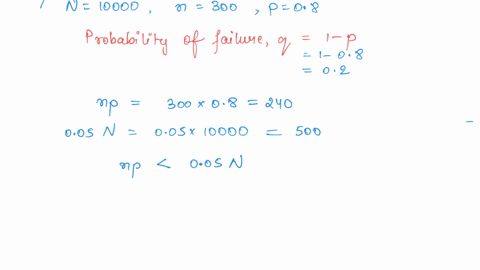 N = 10000, n = 300, p = 0.8
Probability of failure, q = 1 - p
= 1 - 0.8
= 0.2
np = 300 × 0.8 = 240
0.05 N = 0.05 × 10000 = 500
np < 0.05 N